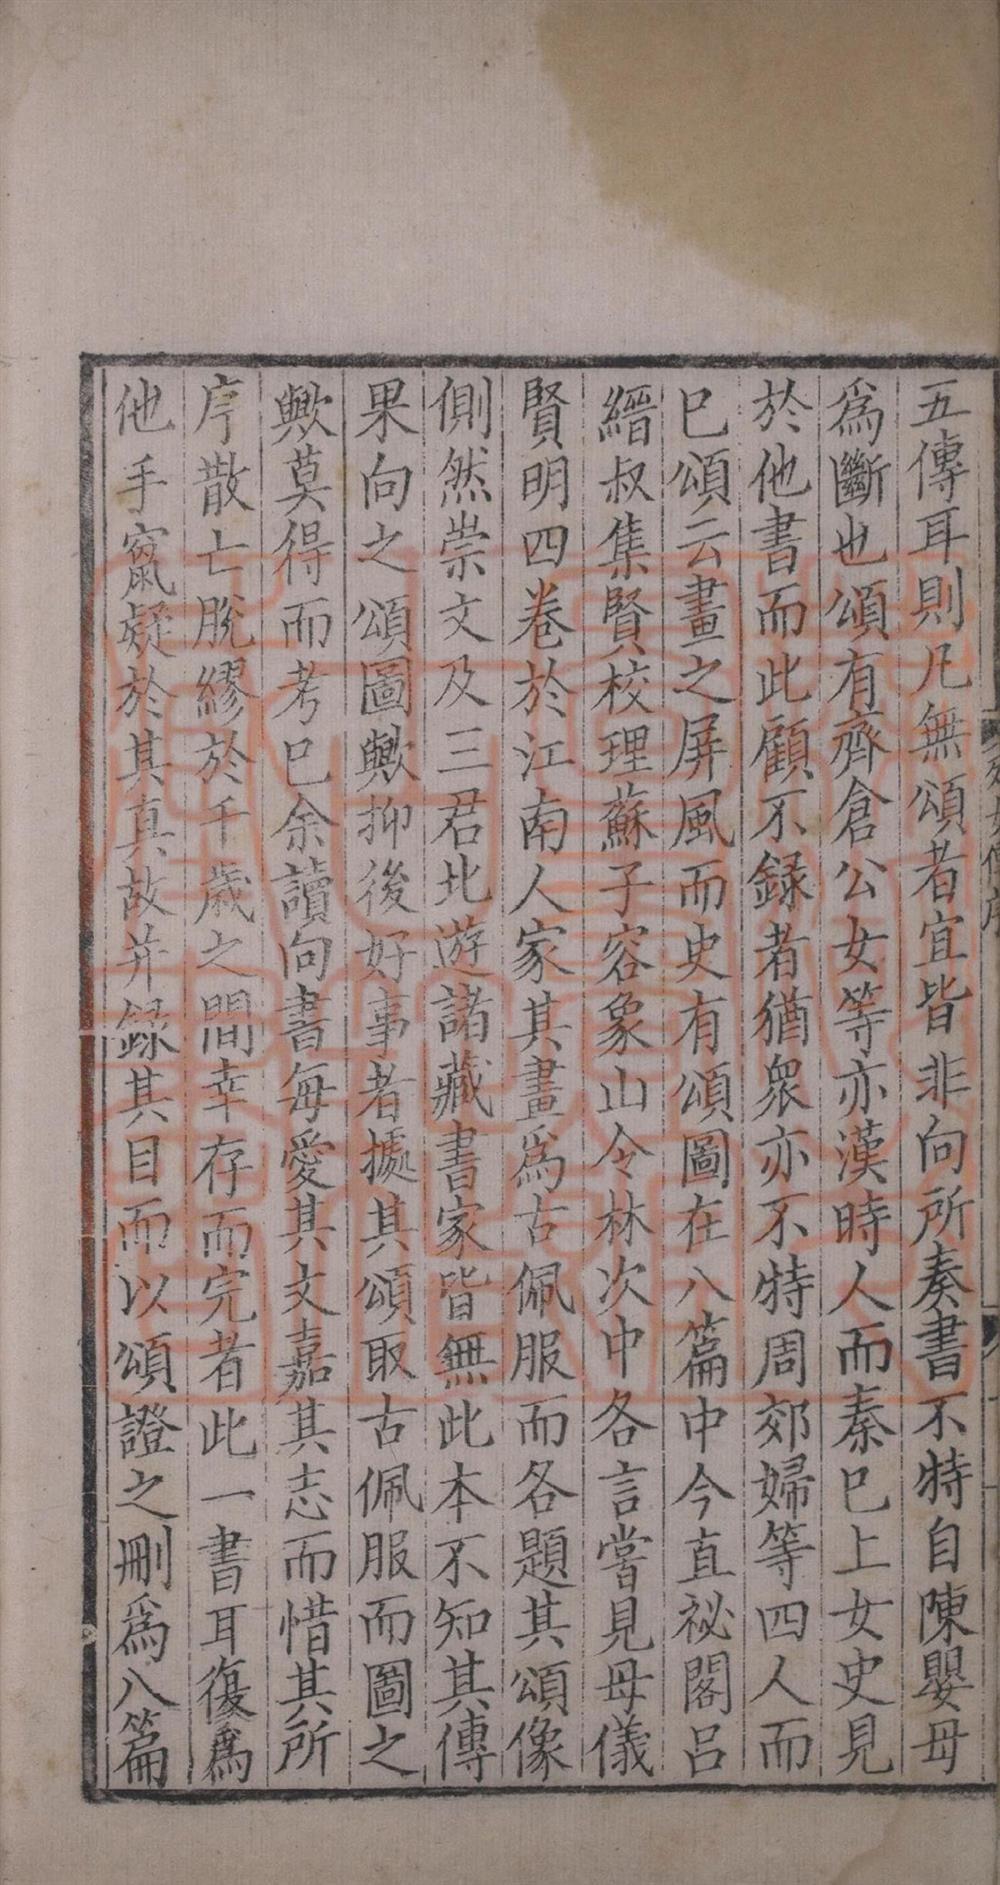 五傳耳則凡無頌者宜皆非向所奏書不特自陳嬰母
爲斷也頌有齊倉公女等亦漢時人而秦巳上女史見
於他書而此顧不録者猶衆亦不特周郊婦等四人而
巳頌云畫之屏風而史有頌圖在八篇中今直祕閣呂
縉叔集賢校理蘇子容象山令林次中各言嘗見母儀
賢明四卷於江南人家其畫爲古佩服而各題其頌像
側然崇文及三君北遊諸藏書家皆無此本不知其傳
果向之頌圖歟抑後好事者據其頌取古佩服而圖之
歟莫得而考巳余讀向書每愛其文嘉其志而惜其所
序散亡脫繆於千歳之間幸存而完者此一書耳復爲
他手竄疑於其真故并録其目而以頌證之刪爲八篇
列女傳序